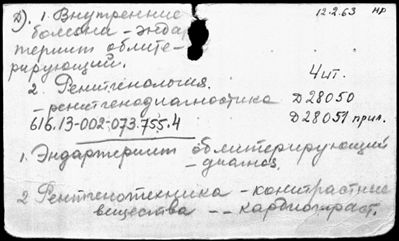 Д). 1. Внутренние 12.2.63 НР
болезни - эндар
териит облите-
рирующий.
2. Рентгенология. 4 чт.
- рентгенодиагностика Д 28050
616.13-002-073.755.4 Д 28051 прил.
1. Эндартериит облитерирующий
- диагноз.
2 Рентгенотехника - контрастные
вещества -- кардиотраст.